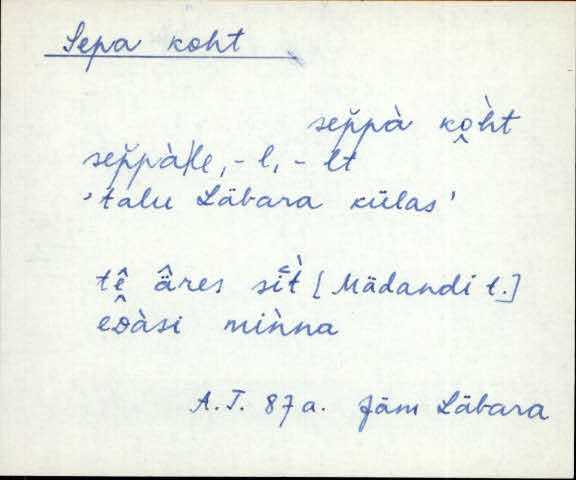 Sepa koht
sep̆pà ko̭h̀t
sep̆pà/le, -l, -lt
'talu Läbara külas'
tê âres sìt́ [Mädandi t.]
eᴅàsi miǹna
A.T. 87a. Jäm Läbara